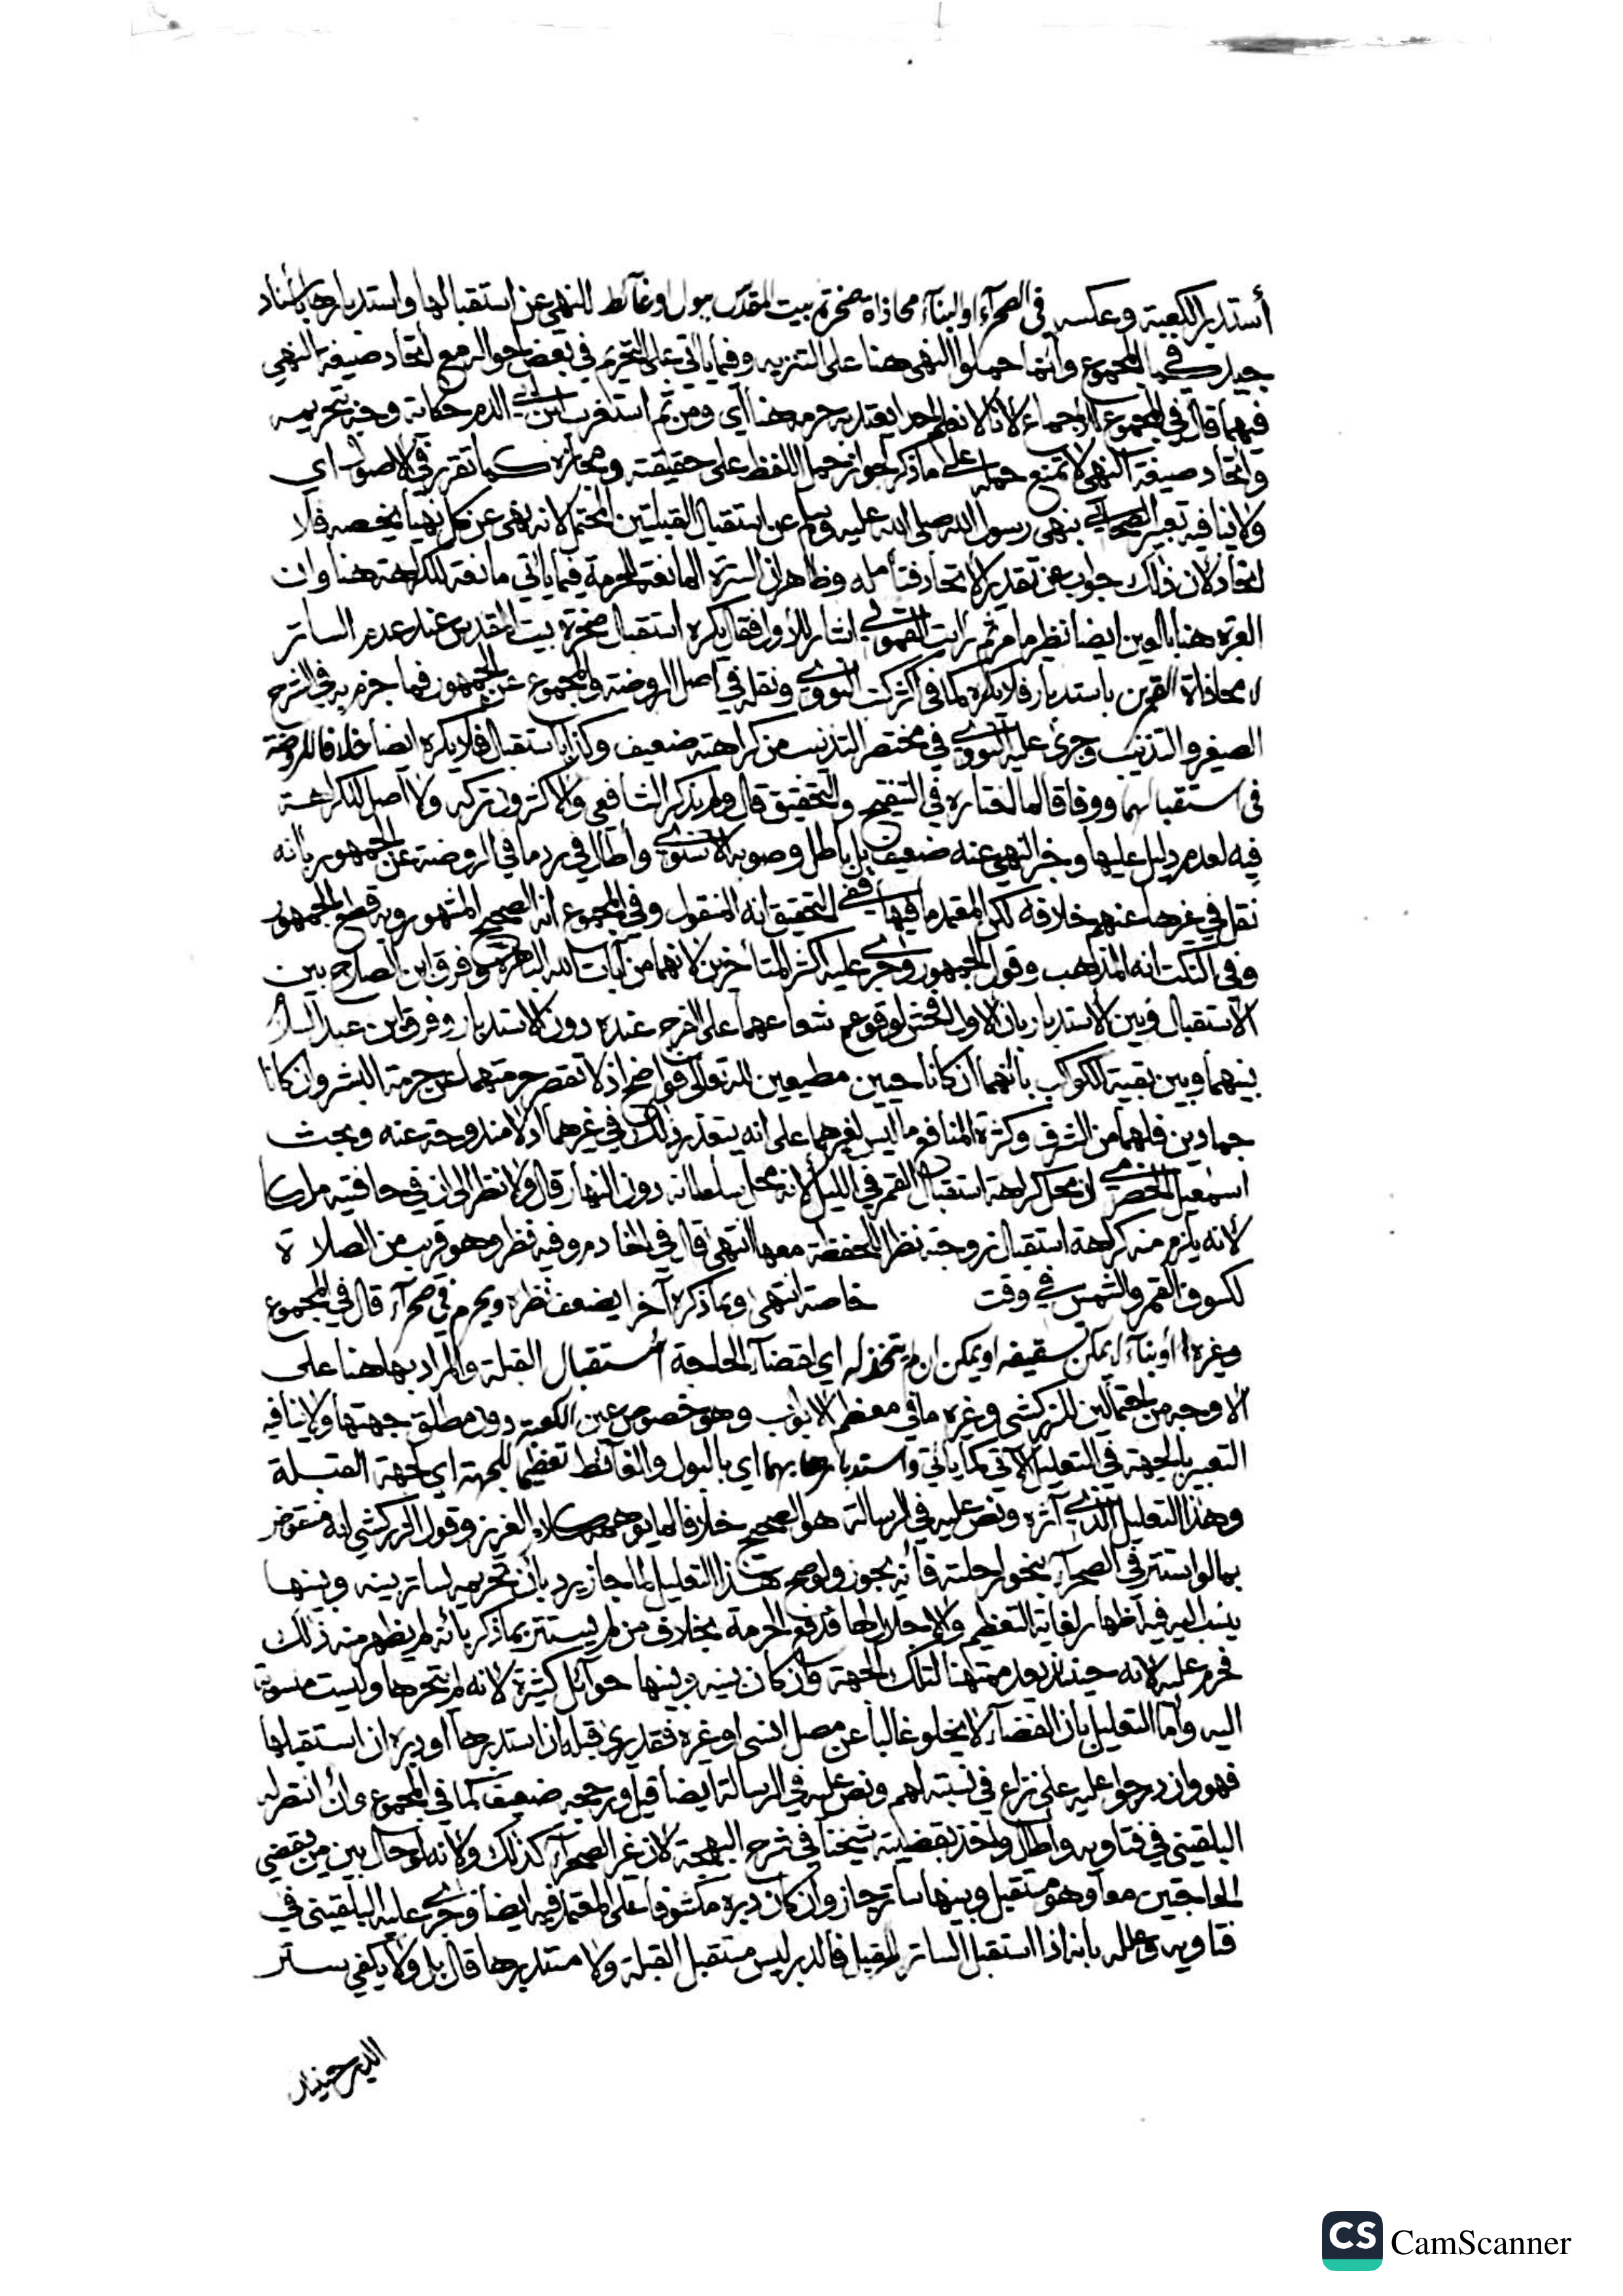 أستدبر الكعبة وعكسه في الصحرآء او البنآء محاذاة صخرة بيت المقدس ببول او غآئط للنهي عن استقبالها واستدبارها باسناد
جيد كما في المجموع وانما حملوا النهي هنا على التنزيه وفيما ياتي على التحريم في بعض احواله مع اتحاد صيغة النهي
فيهما قال في المجموع للاجماع لانا لا نعلم احدا يعتد به حرمه هنا أي ومن ثم استغرب ابن ابي الدم حكاية وجه بتحريمه
واتحاد صيغة النهي لا تمنع حمله على ما ذكر لجواز حمل اللفظ على حقيقته ومجازه كما تقرر في الاصول اي
ولا ينافيه تعبير الصحابي بنهي رسول الله صلى الله عليه وسلم عن استقبال القبلتين المحتمل لانه نهى عن كل نهيا يخصه فلا
اتحاد لان ذلك جواب عن تقدير الاتحاد فتأمله وظاهر ان السترة المانعة للحرمة فيما ياتي مانعة للكراهة هنا وان
العبرة هنا بالعين ايضا نظير ما مر ثم رأيت القمولي اشار للأول فقال يكره استقبال صخرة بيت المقدس عند عدم الساتر
لا محاذاة القمرين باستدبار فلا يكره كما في اكثر كتب النووي ونقله في اصل الروضة والمجموع عن الجمهور فما جزم به في الشرح
الصغير والتذنيب وجرى عليه النووي في مختصر التذنيب من كراهته ضعيف وكذا باستقبال فلا يكره ايضا خلافا للروضة
في استقبالهما ووفاقا لما اختاره في التنقيح والتحقيق قال ولم يذكر الشافعي والاكثرون تركه ولا أصل للكراهة
فيه لعدم دليل عليها وخبر النهي عنه ضعيف بل باطل وصوبه الاسنوي وأطال في رد ما في الروضة عن الجمهور بأنه
نقل في غيرها عنهم خلافه لكن المعتمد ما فيها ففي التحقيق انه المنقول وفي المجموع انه الصحيح المشهور وبه قطع الجمهور
وفي النكت انه المذهب وقول الجمهور وجرى عليه اكثر المتأخرين لانهما من آيات الله الباهرة وفرق ابن الصلاح بين
الأستقبال وبين الاستدبار بان الاول افحش لوقوع شعاعهما على الفرج عنده دون الاستدبار وفرق ابن عبد السلام
بينهما وبين بقية الكواكب بانهما ان كانا حيين مطيعين لله تعالى فواضح اذ لا تقصر حرمتهما عن حرمة البشر وان كانا
جمادين فلهما من الشرف وكثرة المنافع ما ليس لغيرهما على انه يتعذر ذلك في غيرهما اذ لا مندوحة عنه وبحث
اسمعيل الحضرمي ان محل كراهة استقبال القمر في الليل لانه محل سلطانه دون النهار قال ولا نظر الى ان في حافتيه ملكا
لأنه يلزم منه كراهة استقبال زوجته نظرا للحفظة معها انتهى قال في الخادم وفيه نظر وهو قريب من الصلاة
لكسوف القمر والشمس في وقت خاصة انتهى وبما ذكره آخرا يضعف نظره ويحرم في صحرآء قال في المجموع
وغيره أو بنآء لا يمكن تسقيفه او يمكن ان لم يتخذ له اي لقضآء الحاجة أستقبال القبلة والمراد بها هنا على
الأوجه من احتمالين للزركشي وغيره ما في معظم الابواب وهو خصوص عين الكعبة دون مطلق جهتها ولا ينافيه
التعبير بالجهة في التعليل الآتي كما يأتي واستدبارها بهما اي بالبول والغآئط تعظيما للجهة اي لجهة القبلة
وهذا التعليل الذي آثره ونص عليه في الرسالة هو الصحيح خلافا لما يوهمه كلام العزيز وقول الزركشي انه منقوض
بما لو استتر في الصحرآء بنحو راحلته فأنه يجوز ولو صح هذا التعليل لما جاز يرد بأن تحريه لساتر بينه وبينها
ينسب اليه فيه اظهار لغاية التعظيم والاجلال لها فدفع الحرمة بخلاف من لم يستتر بما ذكر بأنه لم يظهر منه ذلك
فحرم عليه لانه حينئذ يعد ممتهنا لتلك الجهة وان كان بينه وبينها حوآئل كثيرة لانه لم يتحرها وليست منسوبة
اليه وأما التعليل بان الفضآء لا يخلو غالبا عن مصل انسي او غيره فقد يرى قبله ان استدبرها أو دبره ان استقبلها
فهو وان درجوا عليه على نزاع في نسبته لهم ونص عليه في الرسالة أيضا قيل ورجحه ضعيف كما في المجموع وان انتصر له
البلقيني في فتاويه وأطال وأخذ بقضيته شيخنا في شرح البهجة لان غير الصحرآء كذلك ولأنه لو حال بين من يقضي
الحاجتين معا وهو مستقبل وبينها ساتر جاز وان كان دبره مكشوفا على المعتمد فيه ايضا وجرى عليه البلقيني في
فتاويه وعلله بانه اذا استقبل الساتر بالقبل فالدبر ليس مستقبل القبلة ولا مستدبرها قال بل ولا يكفي ستر
الدبر حينئذ
CamScanner